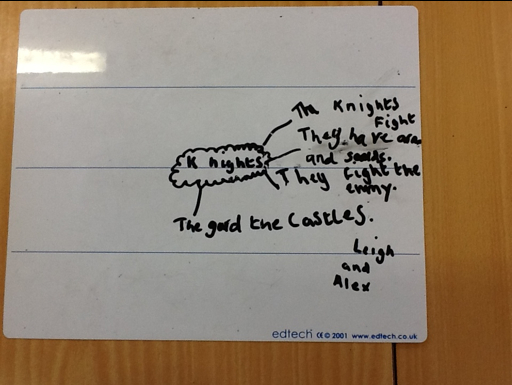 The Knights
Fight
They have
Knights
and
They fight the
enemy.
The gard the Castles.
Leigh
and
Alex
edtech CE © 2001 www.edtech.co.uk